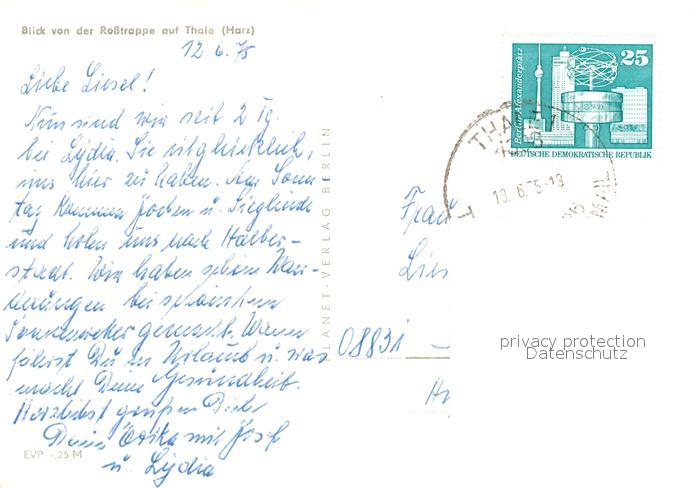 Blick von der Roßtrappe auf Thale (Harz)
12.6.75
Liebe Liesel!
Nun sind wir seit 2 Tg.
bei Lydia. Sie ist glücklich,
uns hier zu haben. Am Sonn-
tag kommen Jochen u. Sieglinde
und holen uns nach Halber-
stadt. Wir haben schöne Wan-
derungen bei schönstem
Sonnenwetter gemacht. Wann
fährst Du in Urlaub u. was
macht Deine Gesundheit.
Herzlichst grüßen Dich
Deine Erika mit Josef
u. Lydia
EVP -,25 M
PLANET-VERLAG BERLIN
Berlin, Alexanderplatz
25
DEUTSCHE DEMOKRATISCHE REPUBLIK
THALE
13.6.75-13
Frau
Lies
08831
privacy protection
Datenschutz